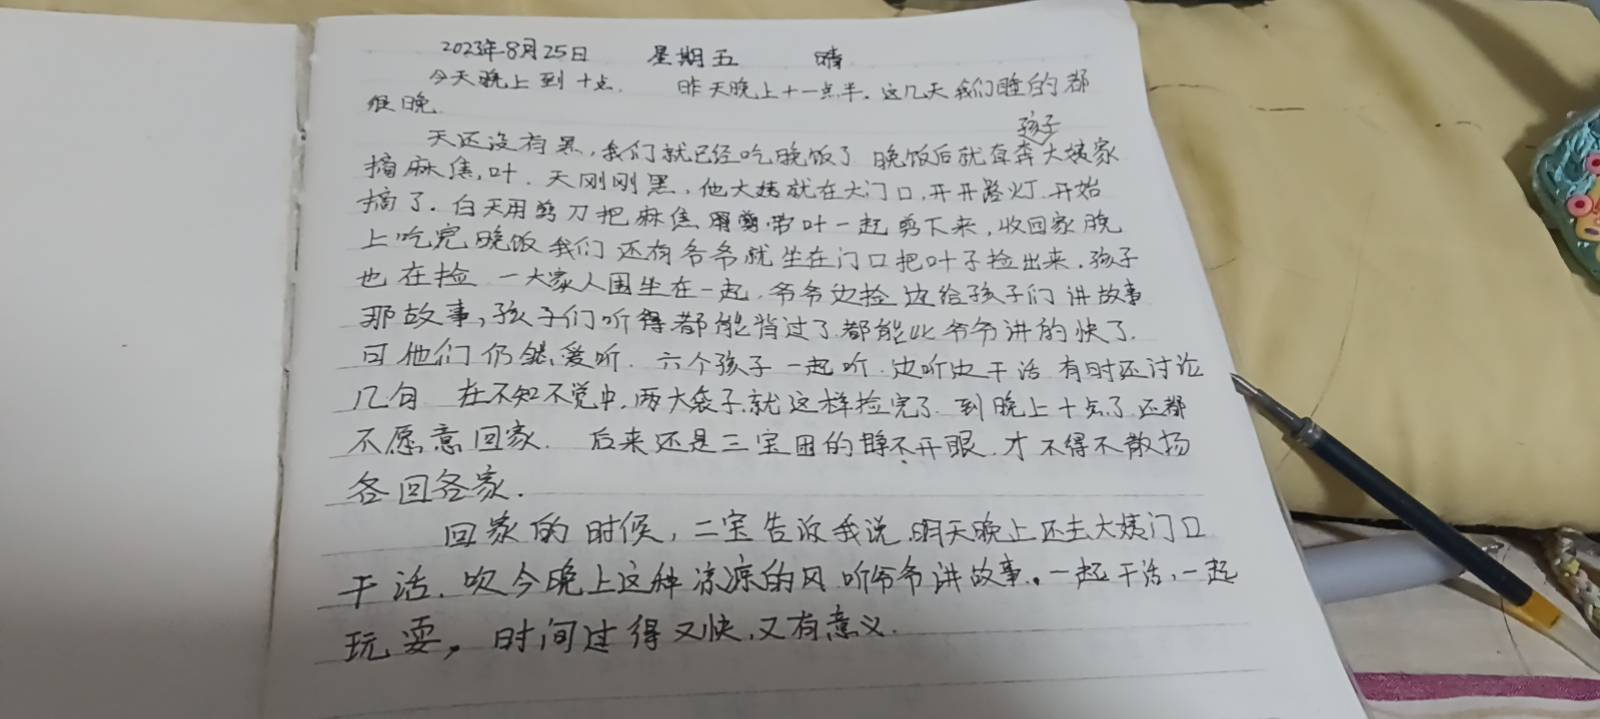 2023年8月25日 星期五 晴
今天晚上到十点. 昨天晚上十一点半.这几天我们睡的都
很晚.
天还没有黑,我们就已经吃晚饭了 晚饭后就有孩子奔大姨家
摘麻焦,叶.天刚刚黑,他大姨就在大门口,开开路灯.开始
摘了.白天用剪刀把麻焦带叶一起剪下来,收回家晚
上吃完晚饭我们还有爷爷就坐在门口把叶子捡出来.孩子
也在捡 一大家人围坐在一起.爷爷边捡边给孩子们讲故事
那故事,孩子们听得都能背过了.都能比爷爷讲的快了.
可他们仍然爱听.六个孩子一起听.边听边干活 有时还讨论
几句 在不知不觉中,两大袋子就这样捡完了.到晚上十点了还都
不愿意回家. 后来还是三宝困的睁不开眼.才不得不散场
各回各家.
回家的时候,二宝告诉我说.明天晚上还去大姨门口
干活.吹今晚上这种凉凉的风 听爷爷讲故事.一起干活,一起
玩耍,时间过得又快,又有意义.